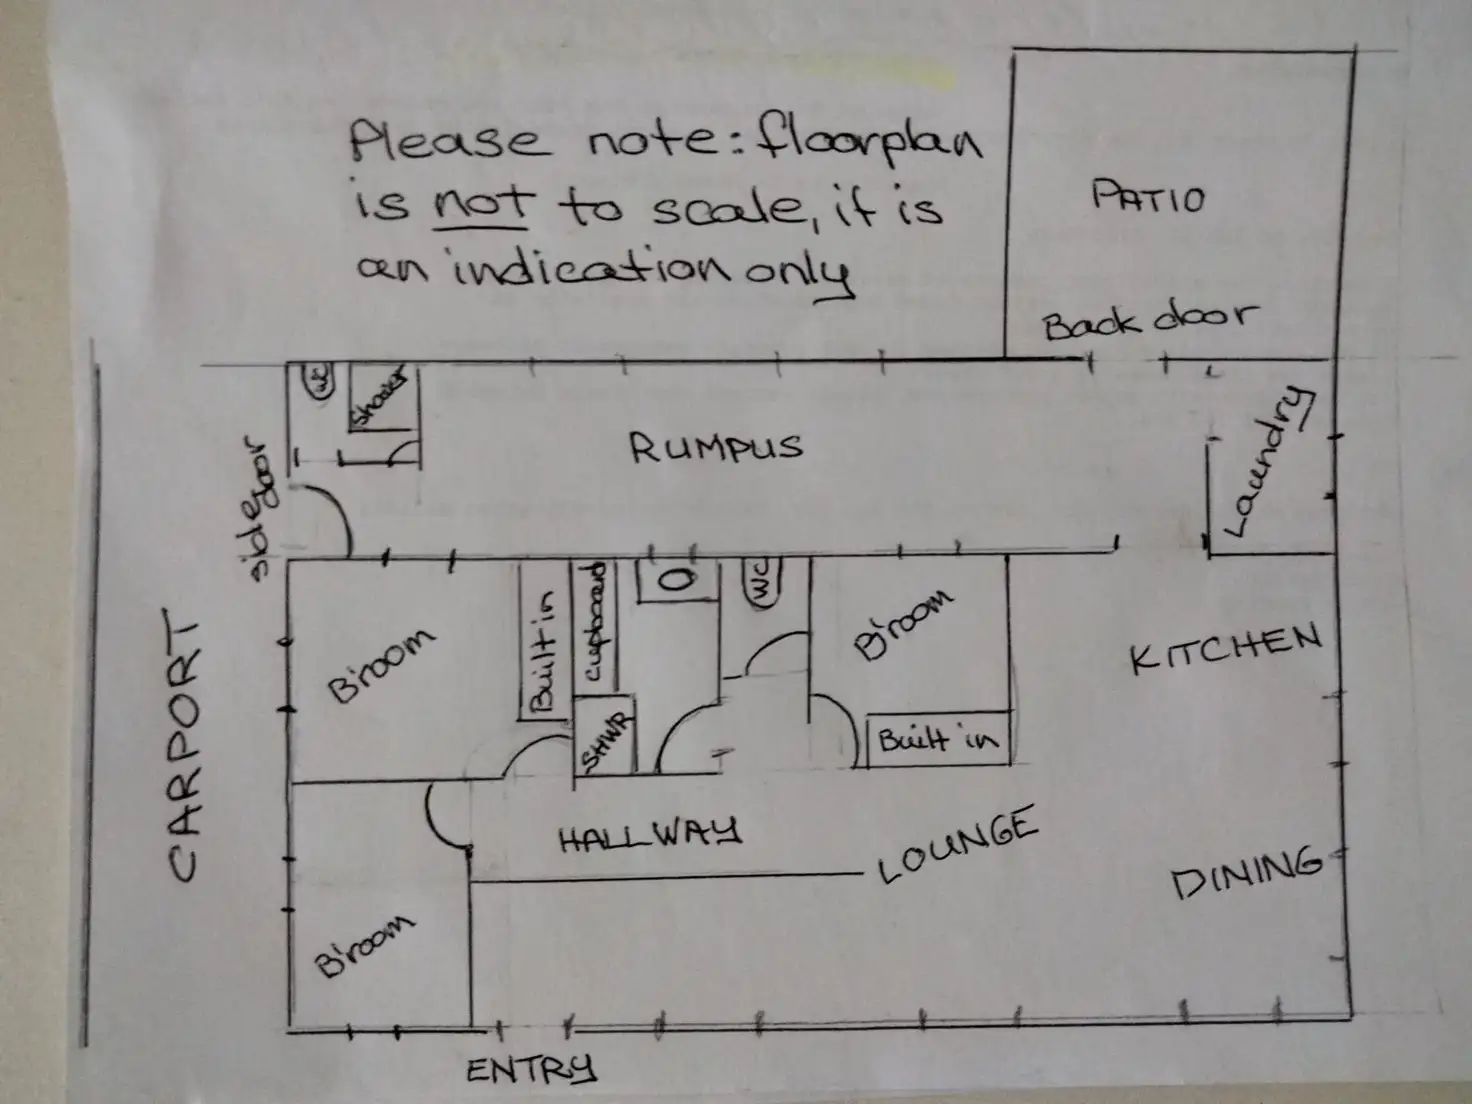 Please note: floorplan
is not to scale, it is
an indication only
PATIO
Back door
WC
Shower
RUMPUS
Laundry
side door
CARPORT
B'room
Built in
Cupboard
SHWR
WC
B'room
Built in
KITCHEN
HALLWAY
LOUNGE
DINING
B'room
ENTRY